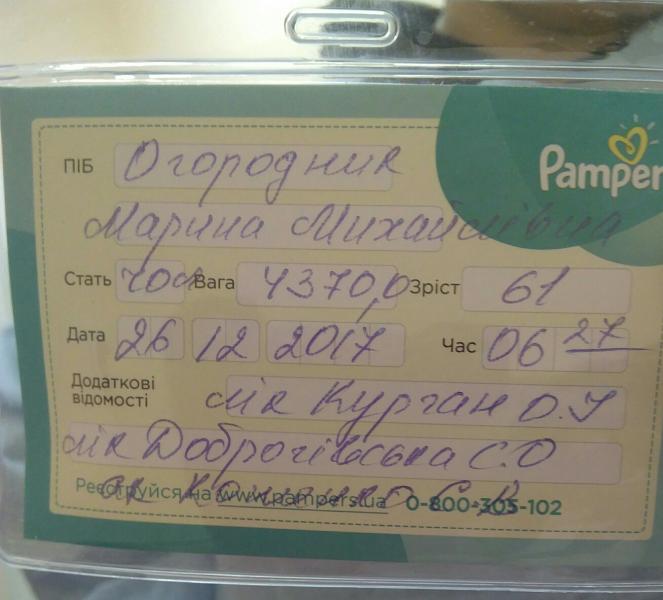 Pampers
ПІБ Огородник
Марина Михайлівна
Стать чол Вага 4370,0 Зріст 61
Дата 26 12 2017 Час 06 27
Додаткові відомості лік Курган О.І
лік Доброчівська С.О
Реєструйся на www.pampers.ua 0-800-305-102
ак С.В